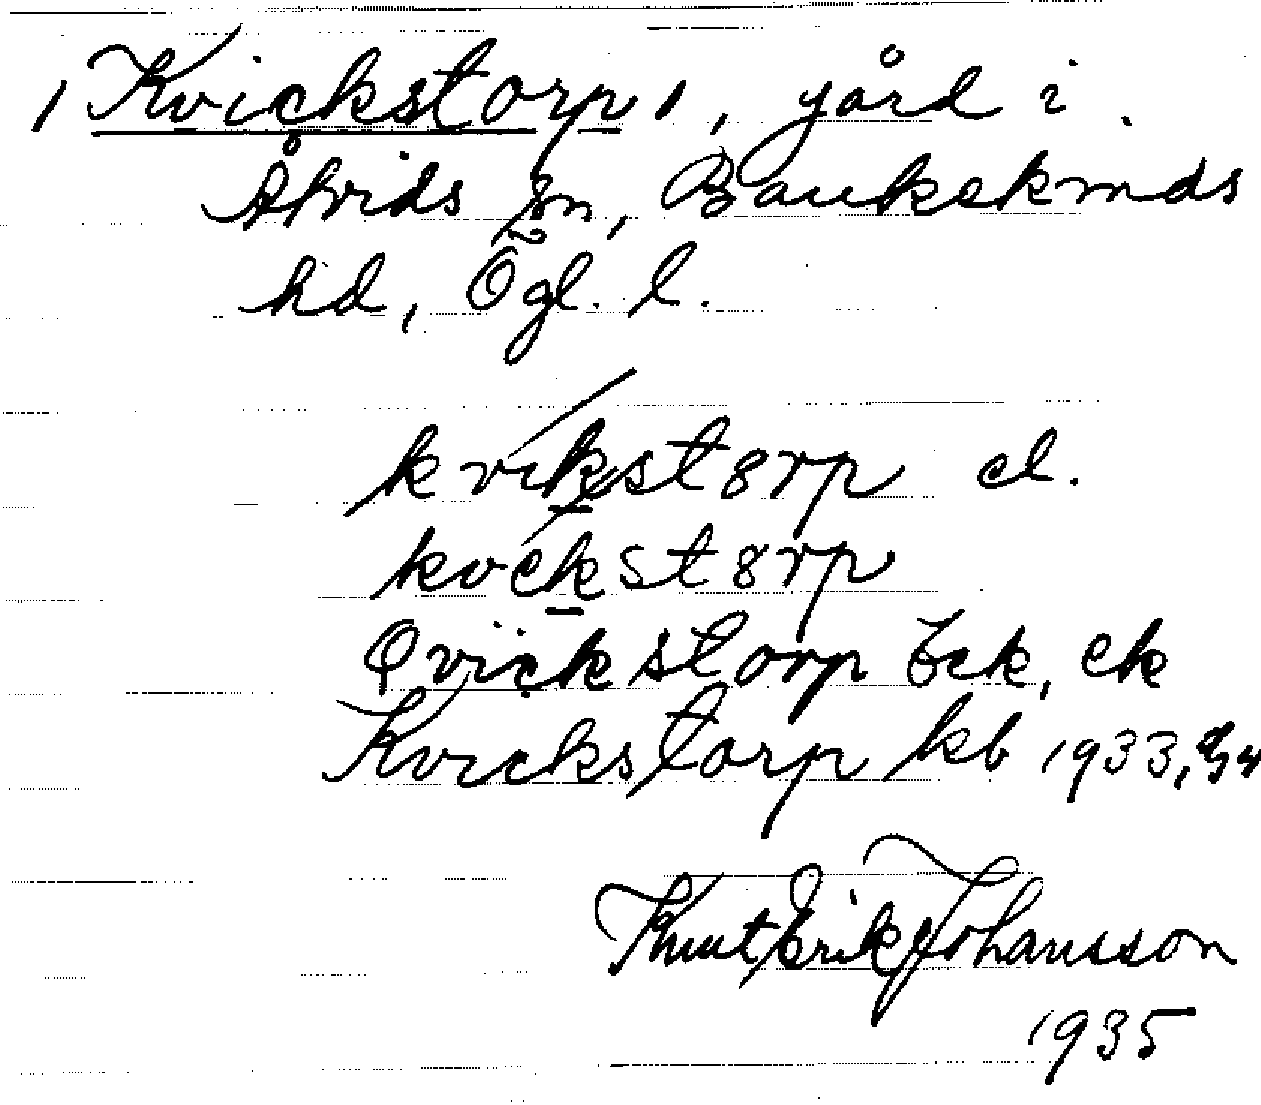 /Kvickstorp/, gård i
Åtvids sn, Bankekinds
hd, Ögl. l.
kvikstorp el.
kvekstorp
Qvickstorp Eck, ek
Kvickstorp kb 1933,
Knut Erik Johansson
1935